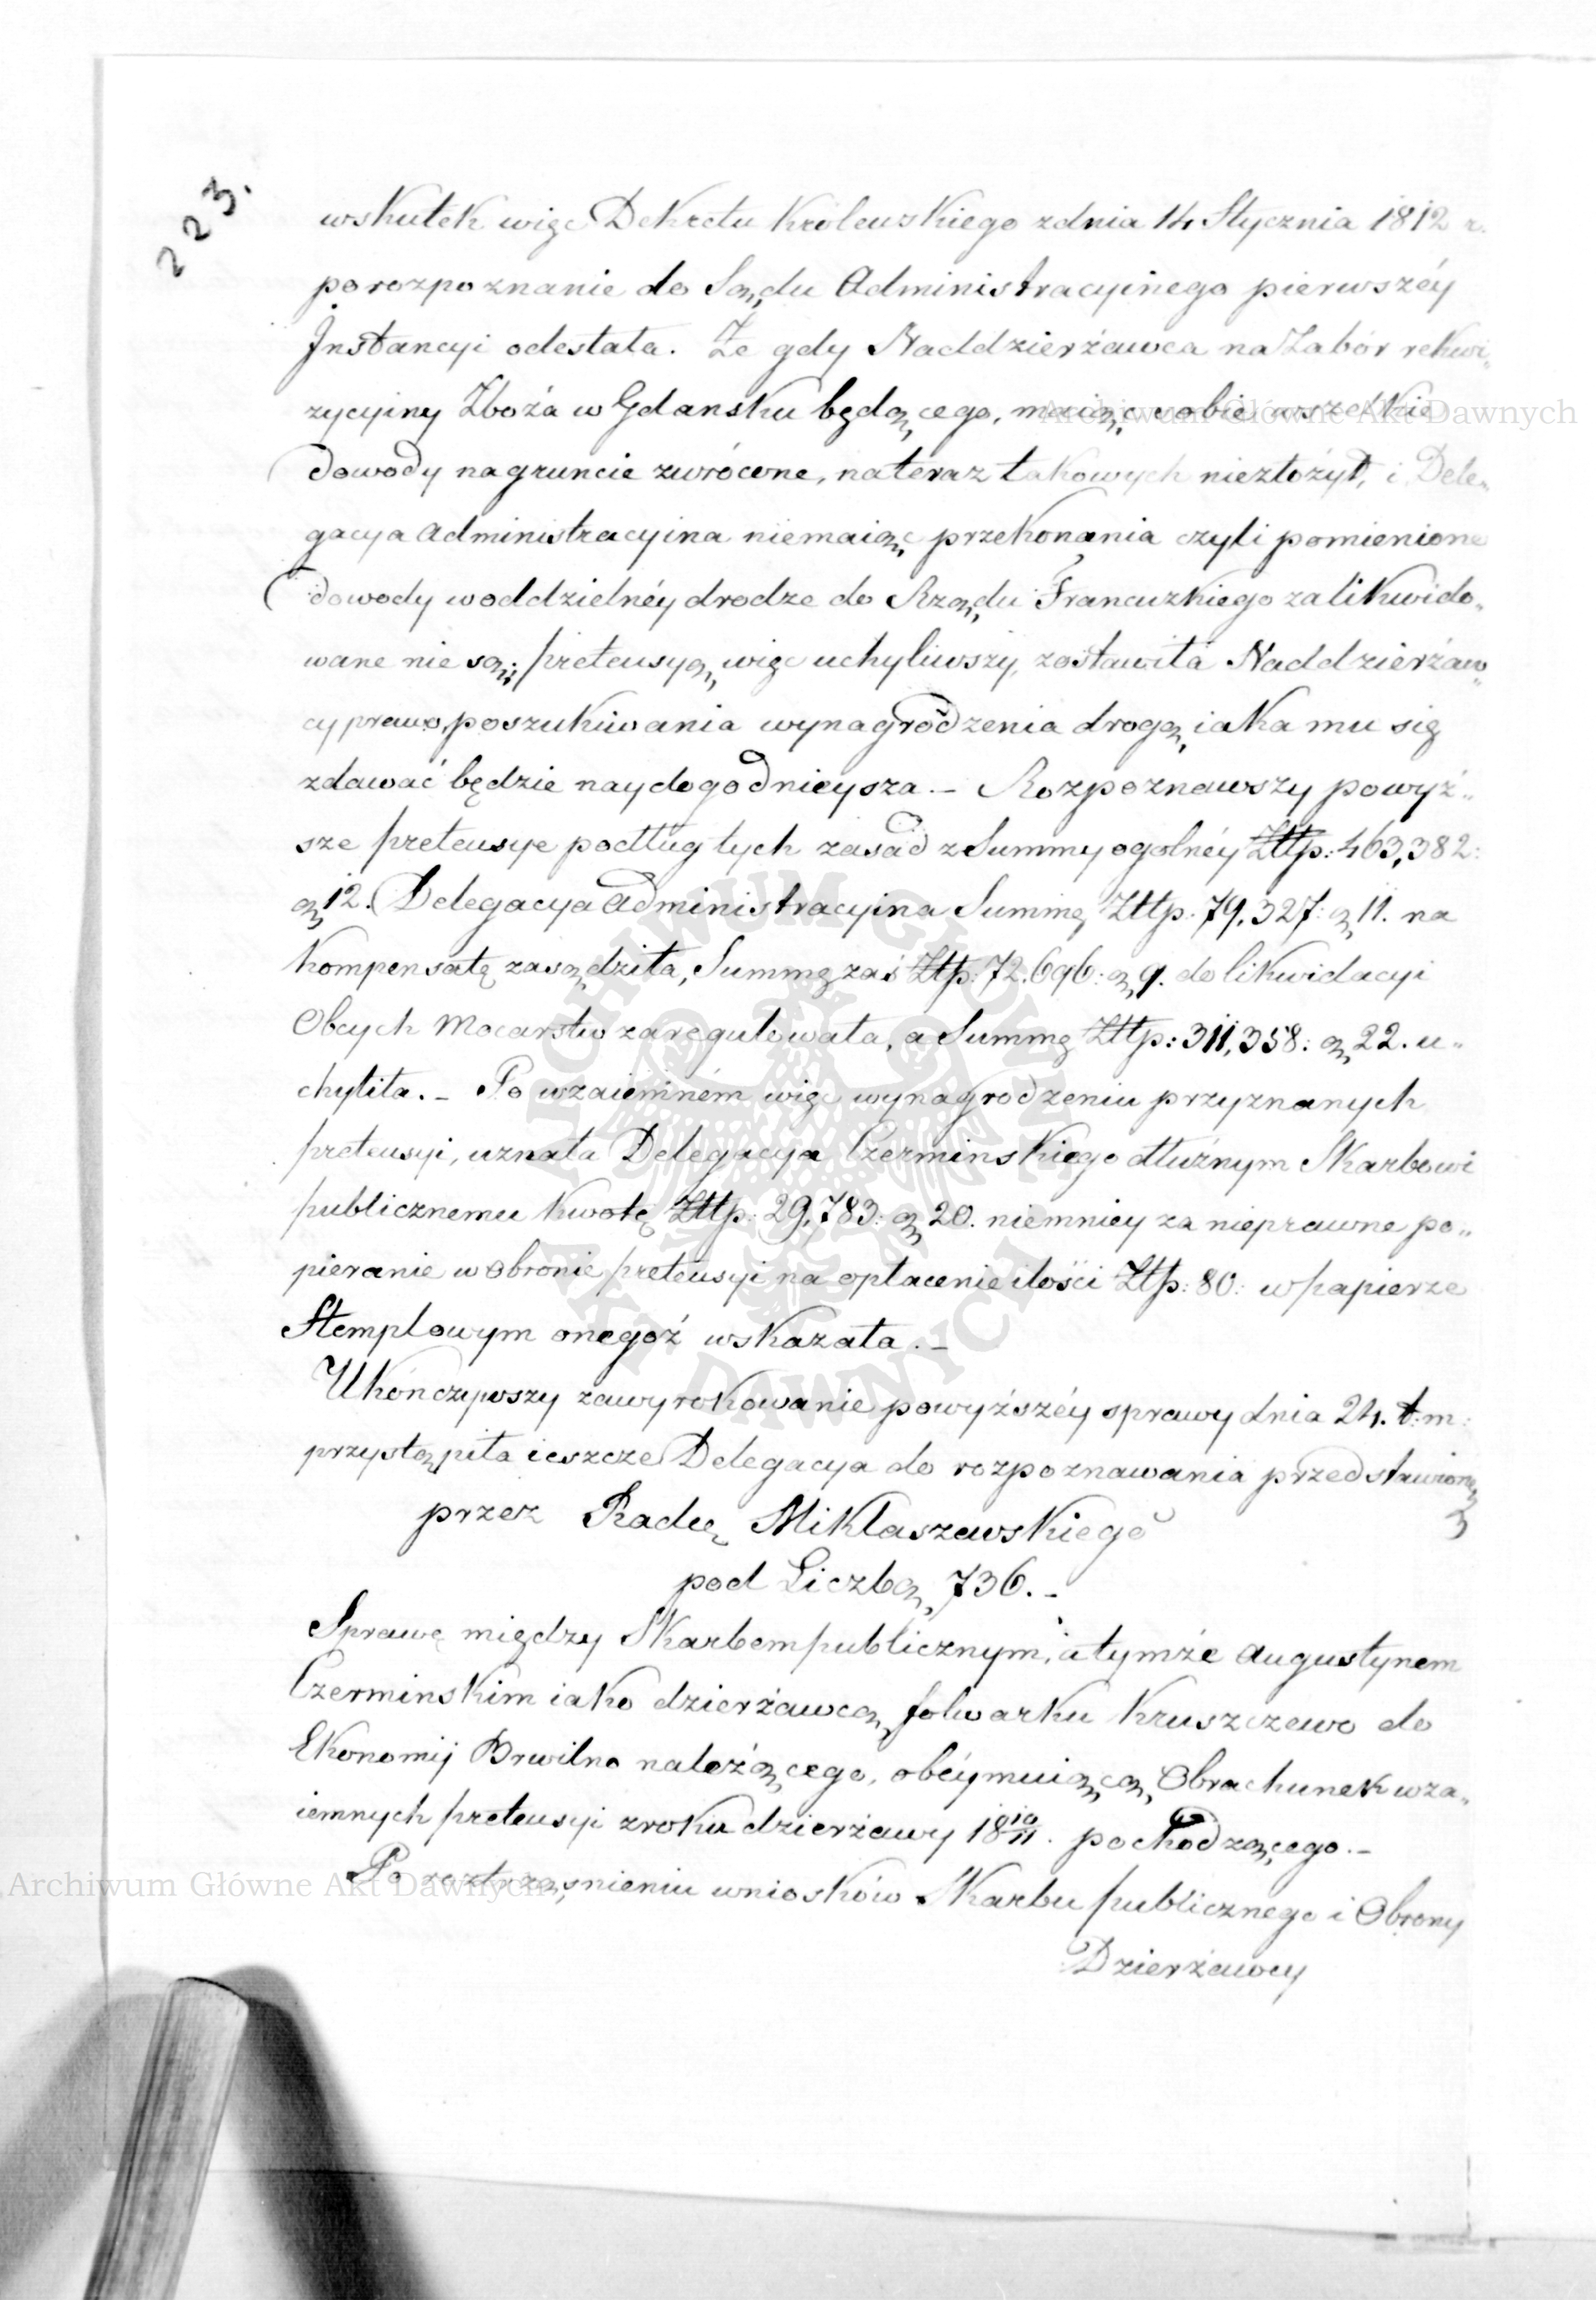 223.
wskutek więc Dekretu Królewskiego zdnia 14 Stycznia 1812 r.
porozpoznanie do Sądu Administracyinego pierwszéy
Instancyi odesłała. Że gdy Naddzierżawca na Zabór rekwi„
zycyiny Zboża w Gdansku będącego, maiąc sobie wszelkie
dowody nagruncie zwrócone, nateraz takowych niezłożył, i Dele„
gacya administracyina niemaiąc przekonania czyli pomienione
dowody woddzielnéy drodze do Rządu Francuzkiego zalikwido„
wane nie są; pretensyą więc uchyliwszy, zostawiła Naddzierżaw„
cy prawo poszukiwania wynagrodzenia drogą iaka mu się
zdawać będzie naydogodnieysza. – Rozpoznawszy powyż„
sze pretensye podług tych zasad z Summy ogolnéy Złtp: 463,382:
g 12. Delegacya administracyina Summę Złtp. 79,327: g 11. na
kompensatę zasądziła, Summę zaś Złtp: 72.696: g 9. do likwidacyi
Obcych Mocarstw zaregulowała, a Summę Złtp: 311,358: g 22. u„
chyliła. – Po wzaiemném więc wynagrodzeniu przyznanych
pretensyi, uznała Delegacya Czerminskiego dłużnym Skarbowi
publicznemu kwotę Złtp: 29,783: g 20. niemniey za nieprawne po„
pieranie w obronie pretensyi na opłacenie ilości Złtp: 80: w papierze
Stemplowym onegoż wskazała. –
Ukończywszy zawyrokowanie powyższéy sprawy dnia 24. t. m:
przystąpiła ieszcze Delegacya do rozpoznawania przedstawioną
przez Radcę Mikłaszewskiego
pod Liczbą 736. –
Sprawę między Skarbem publicznym, a tymże Augustynem
Czerminskim iako dzierżawcą folwarku Kruszczewo do
Ekonomij Brwilno należącego, obéymuiącą Obrachunek wza„
iemnych pretensyi zroku dzierżawy 18 10/11. pochodzącego. –
Po roztrząśnieniu wniosków Skarbu publicznego i Obrony
Dzierżawcy
Archiwum Główne Akt Dawnych
Archiwum Główne Akt Dawnych
ARCHIWUM GŁÓWNE AKT DAWNYCH